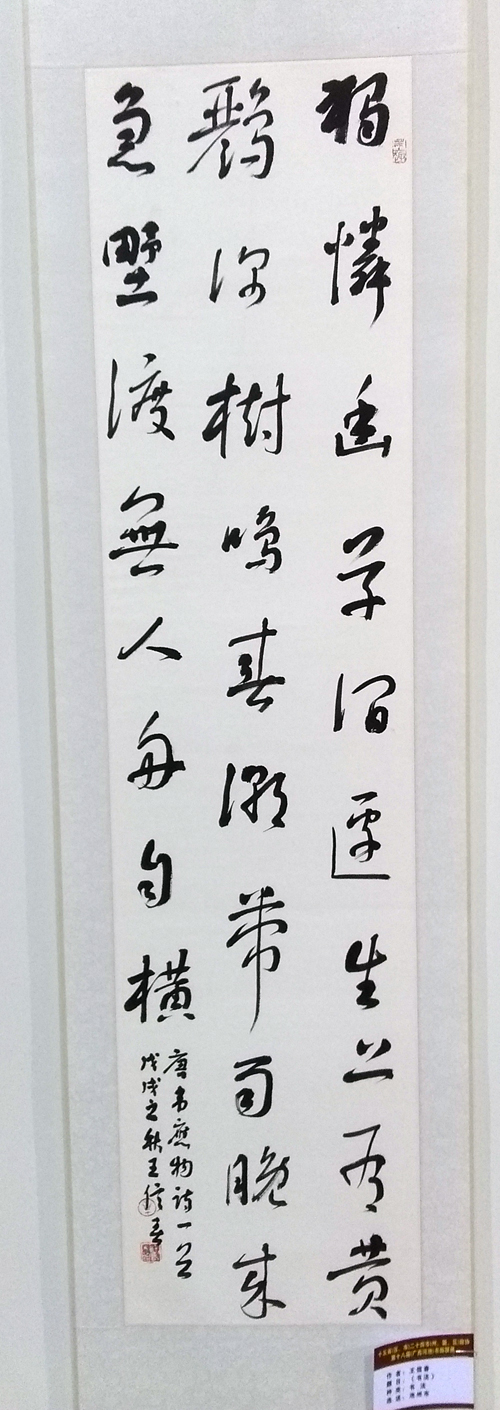 獨憐幽草澗邊生上有黄
鸝深樹鳴春潮帶雨晚来
急野渡無人舟自横
唐韋應物詩一首
戊戌之秋王春
作者：王春
题目：《书法》
种类：书法